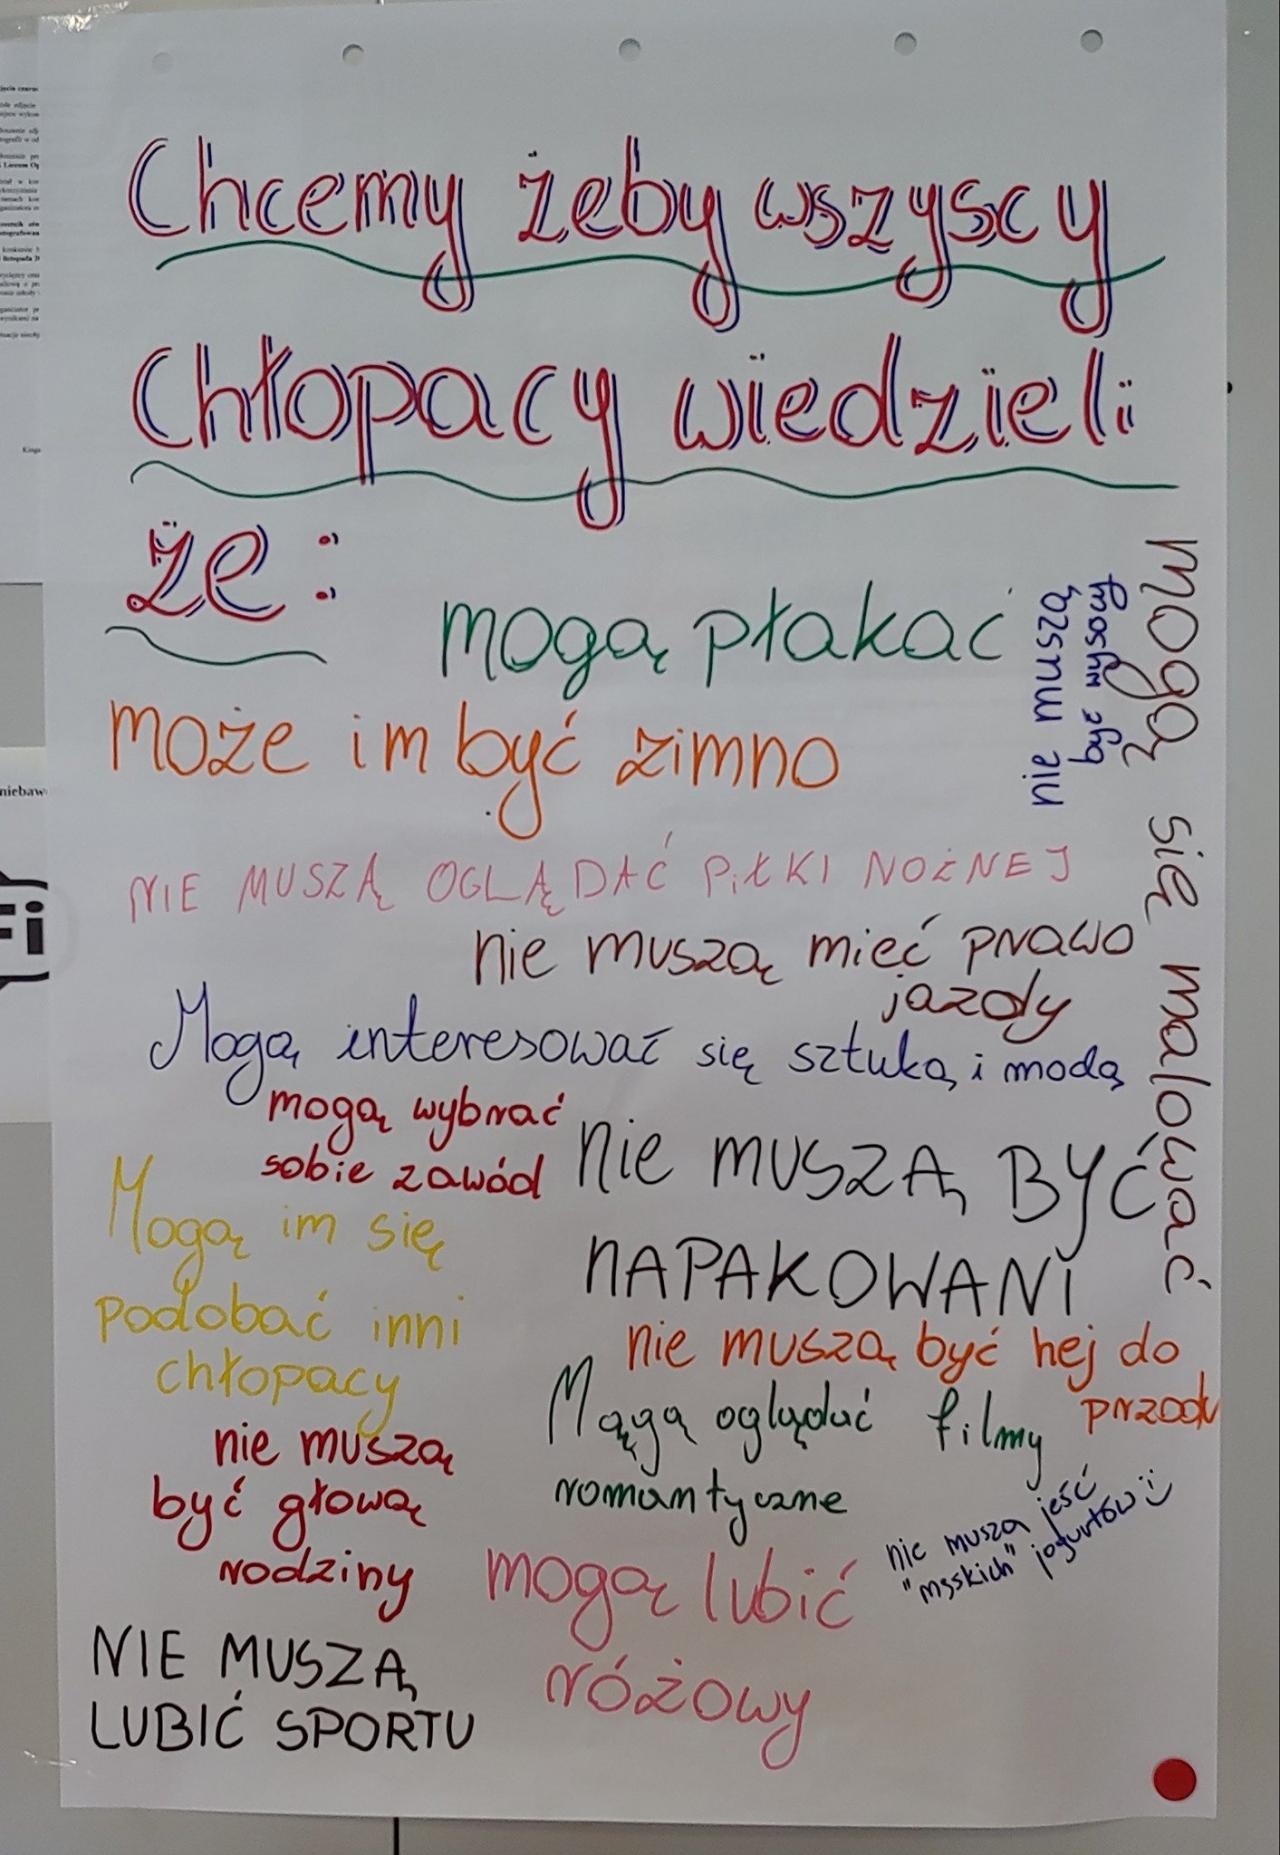 Chcemy żeby wszyscy
Chłopacy wiedzieli
że:
mogą płakać
nie muszą
być wysocy
mogą się malować
może im być zimno
NIE MUSZĄ OGLĄDAĆ PIŁKI NOŻNEJ
nie muszą mieć prawo
jazdy
Mogą interesować się sztuką i modą
mogą wybrać
sobie zawód
nie MUSZĄ BYĆ
NAPAKOWANI
Mogą im się
podobać inni
chłopacy
nie muszą być hej do
przodu
Mągą oglądać filmy
romantyczne
nie muszą
być głową
rodziny
nie muszą jeść
"męskich" jogurtów :)
mogą lubić
różowy
NIE MUSZĄ
LUBIĆ SPORTU
niebaw
Fi